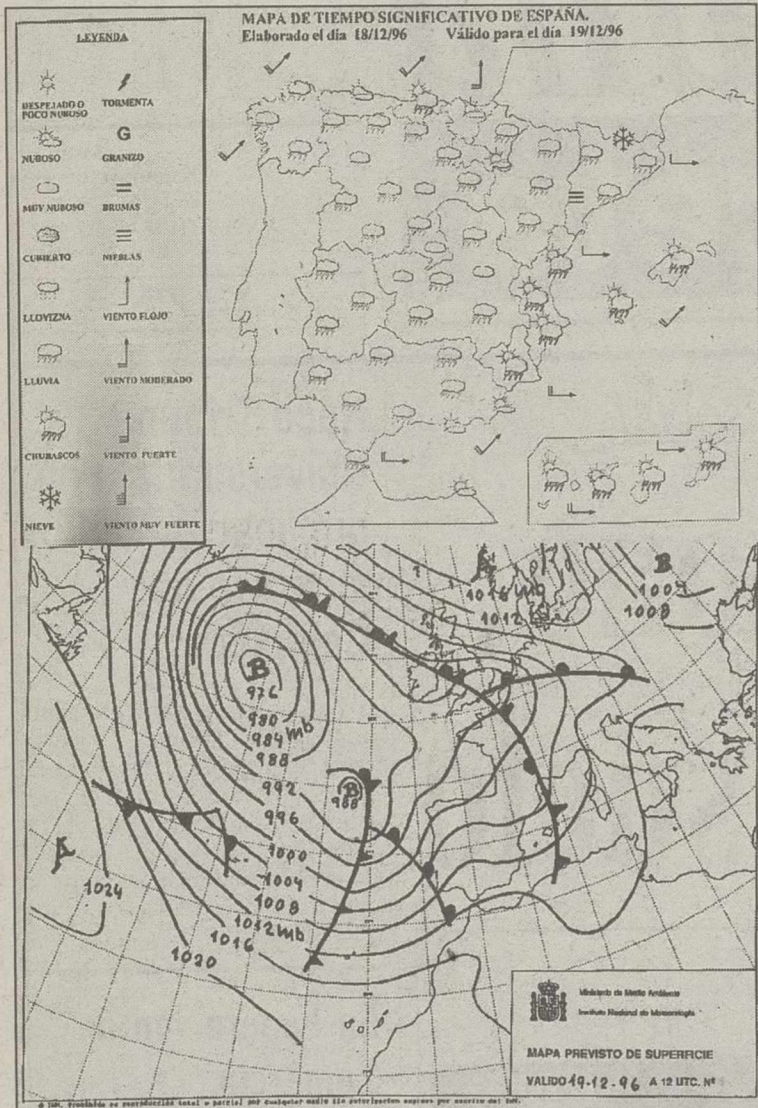 MAPA DE TIEMPO SIGNIFICATIVO DE ESPAÑA.
Elaborado el dia 18/12/96 Válido para el dia 19/12/96
LEYENDA
DESPEJADO O POCO NUBOSO
TORMENTA
NUBOSO
G
GRANIZO
MUY NUBOSO
BRUMAS
CUBIERTO
NIEBLAS
LLOVIZNA
VIENTO FLOJO
LLUVIA
VIENTO MODERADO
CHUBASCOS
VIENTO FUERTE
NIEVE
VIENTO MUY FUERTE
A
1016 mb
1012
B
1004
1008
B
976
980
984 mb
988
B
988
992
996
1000
1004
1008
1012 mb
1016
1020
A
1024
Ministerio de Medio Ambiente
Instituto Nacional de Meteorología
MAPA PREVISTO DE SUPERFICIE
VALIDO 19.12.96 A 12 UTC. Nº
© INM. Prohibida su reproducción total o parcial por cualquier medio sin autorización expresa por escrito del INM.